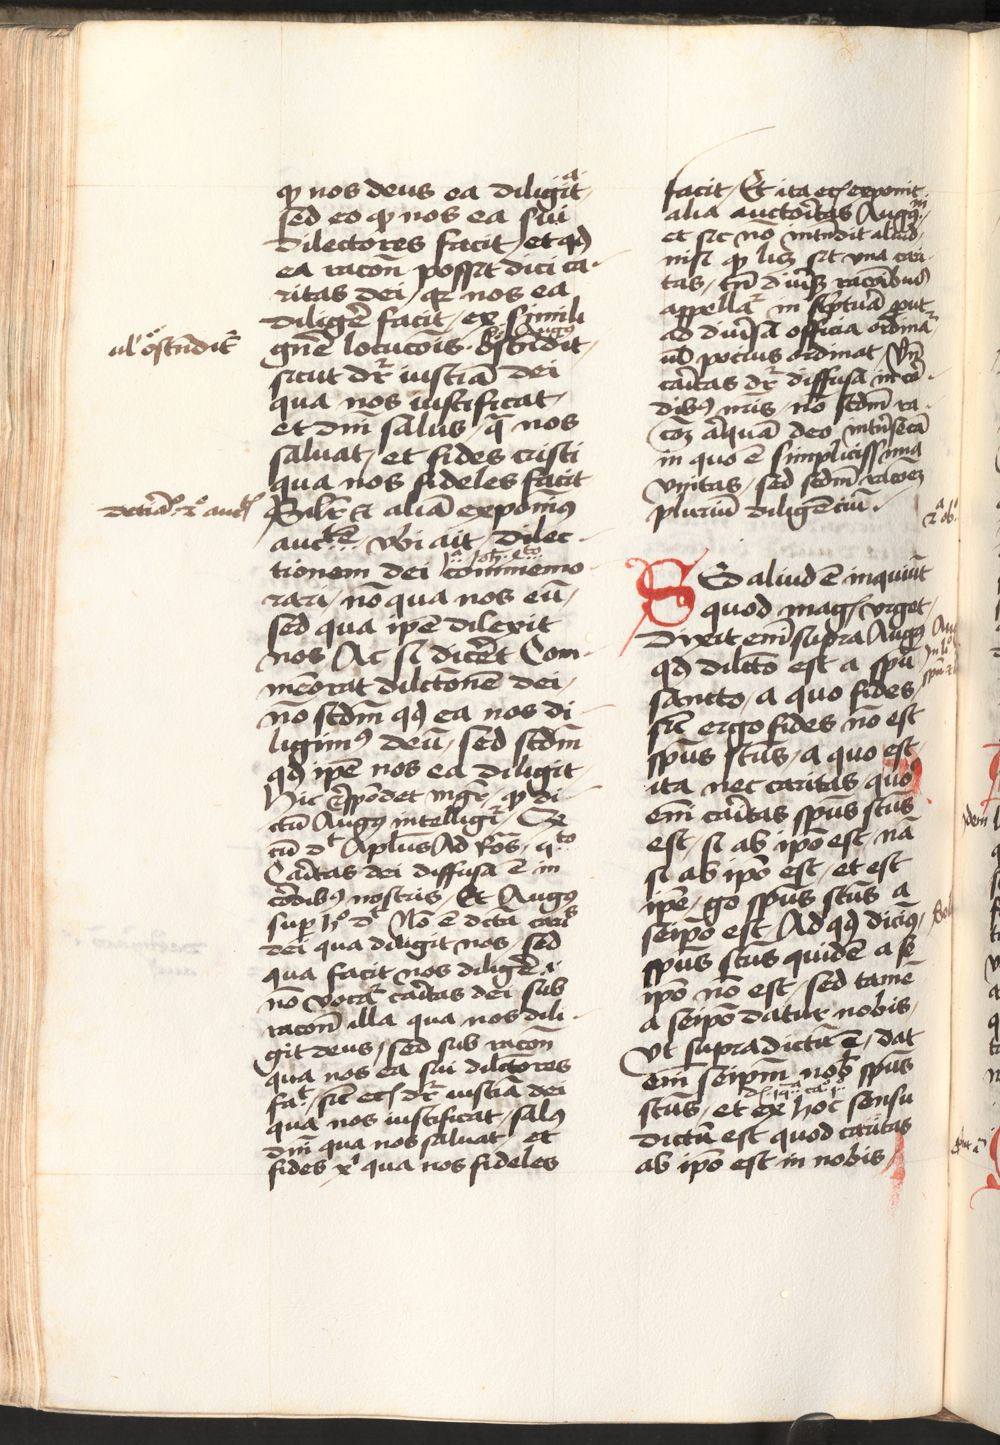 qͥ nos deus ea diligit
sed eo qͥ nos ea sui
dilectores facit et qd
ea racōn possꝫt dici ca
ritas dei qꝛ nos ea
diligē facit ex simili
gnē locucois ostn̄dit
Augꝰ
sicut dr̄ iusticiā dei
qua nos iustificat
et dnī salus q̄ nos
saluat et fides cristi
qua nos fideles facit
aliā exponim9
auctēͫ vbi ait dilec
tionem dei commemo
rari nō qua nos eū
sed qua ipē dilexit
nos Ac si dicēt Com
mēorat dilctōnē dei
nō scdm̄ qd ea nos di
ligim9 deū sed scdm̄
qd ipē nos ea diligit
Hic r̄spōdet mgr̄ qͥ di
ctū Augꝰ intelligr̄ Ex
cū dt Aplūs Ad Rōs qͭͦ
Caritas dei diffusa ē in
cōdib9 nostris Et Augꝰ
sup hͦ dt Nō ē dcta caris
dei qua diligit nos sed
qua facit nos diligē
nō vocat caritas dei sub
racōn illa qua nos dili
git deus sed sub racōn
qua nos ea sui dilctores
fat sic dr̄ iusticiā dei
qua nos iustificat sal9
dnī qua nos saluat et
fides xͥ qua nos fideles
ul ostn̄dit
facit Et ita exponit
alia auctoritas Augꝰ
et sic nō intn̄dit aliud
nisi qͥ licꝫ sit vna cari
tas tn̄ diuīs racōibus
appellaͬ in sc̄ptuā put
ad diuīsa officia ordināͬ
ul pocius ordinat Vn̄
caritas dr̄ diffusa in cō
dib9 nr̄is nō scdm̄ ra
cōꝫ aliquā deo intn̄secā
in quo ē simplicissima
vnitas sed scdm̄ racoeꝫ
plurium diligēciū
Sed aliud ē inquiūt
quod magͭ vrget
Dixit em̄ supra Augꝰ
qd dilcto est a spū
sancto a quo fides
sic ergo fides nō est
spūs sctūs a quo est
ita nec caritas quō
em̄ caritas spūs sctūs
est si ab ipō est nā
si ab ipō est et est
ipē gͦ spūs sctūs a
seipō est Ad qd dicim9
spūs sctūs quidē a se
ipō nō est sed tamē
a seipō datur nobis
Vt supradictū ē dat
em̄ seipm̄ nobis spūs
sctūs et ex hoc sensu
dictū est quod caritas
ab ipō est in nobis